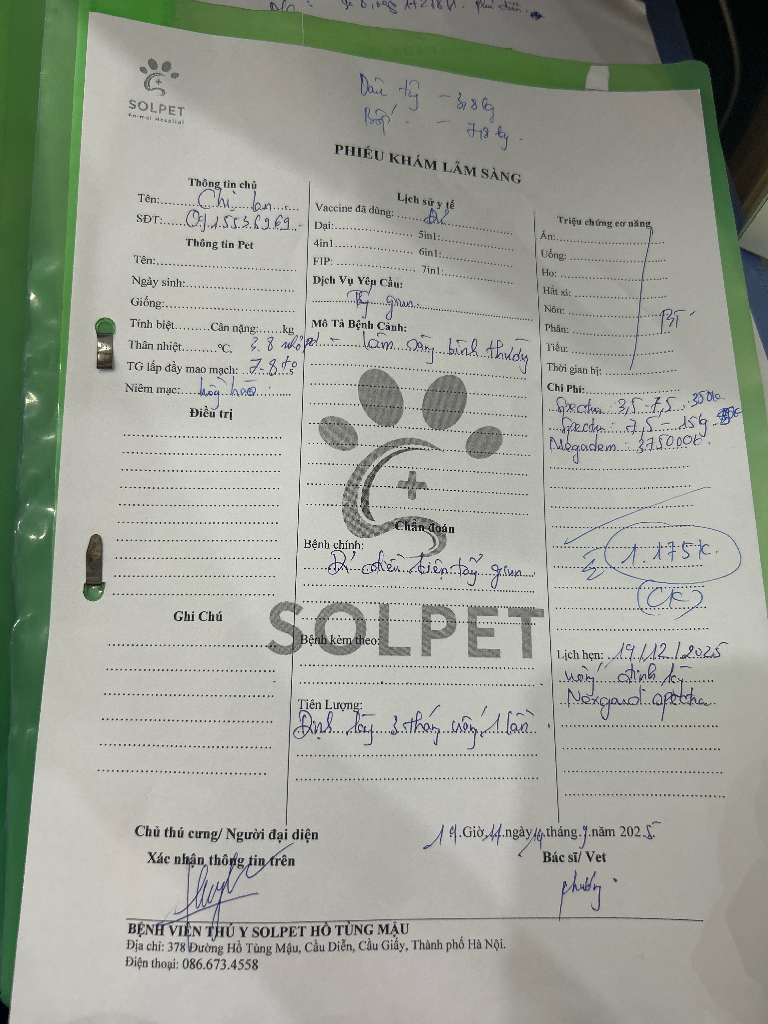 SOLPET
Animal Hospital
Dâu tây - 3,8 kg
Bốp - 7,8 kg.
PHIẾU KHÁM LÂM SÀNG
Thông tin chủ
Tên: Chị lan
SĐT: 0915536969
Thông tin Pet
Tên:
Ngày sinh:
Giống:
Tính biệt Cân nặng: kg
Thân nhiệt °C. 3.8
TG lấp đầy mao mạch: 7.8
Niêm mạc: hồng hào
Điều trị
Ghi Chú
Lịch sử y tế
Vaccine đã dùng:
Dại: 5in1:
4in1 6in1:
FIP: 7in1:
Dịch Vụ Yêu Cầu:
Tẩy giun
Mô Tả Bệnh Cảnh:
- lâm sàng bình thường
Chẩn đoán
Bệnh chính:
tẩy giun
SOLPET
Bệnh kèm theo:
Tiên Lượng:
Định kỳ 3 tháng uống 1 lần.
Triệu chứng cơ năng
Ăn:
Uống:
Ho:
Hắt xì:
Nôn:
Phân: BT
Tiểu:
Thời gian bị:
Chi Phí:
Spectra 3,5-7,5 350k
Spectra: 7,5 - 15kg
375000đ.
1.175k.
(CK)
Lịch hẹn: 19/12/2025
uống định kỳ
Nexgard spectra
19.Giờ.14.ngày 19 tháng.9.năm 2025
Chủ thú cưng/ Người đại diện
Xác nhận thông tin trên
Bác sĩ/ Vet
phương
BỆNH VIỆN THÚ Y SOLPET HỒ TÙNG MẬU
Địa chỉ: 378 Đường Hồ Tùng Mậu, Cầu Diễn, Cầu Giấy, Thành phố Hà Nội.
Điện thoại: 086.673.4558